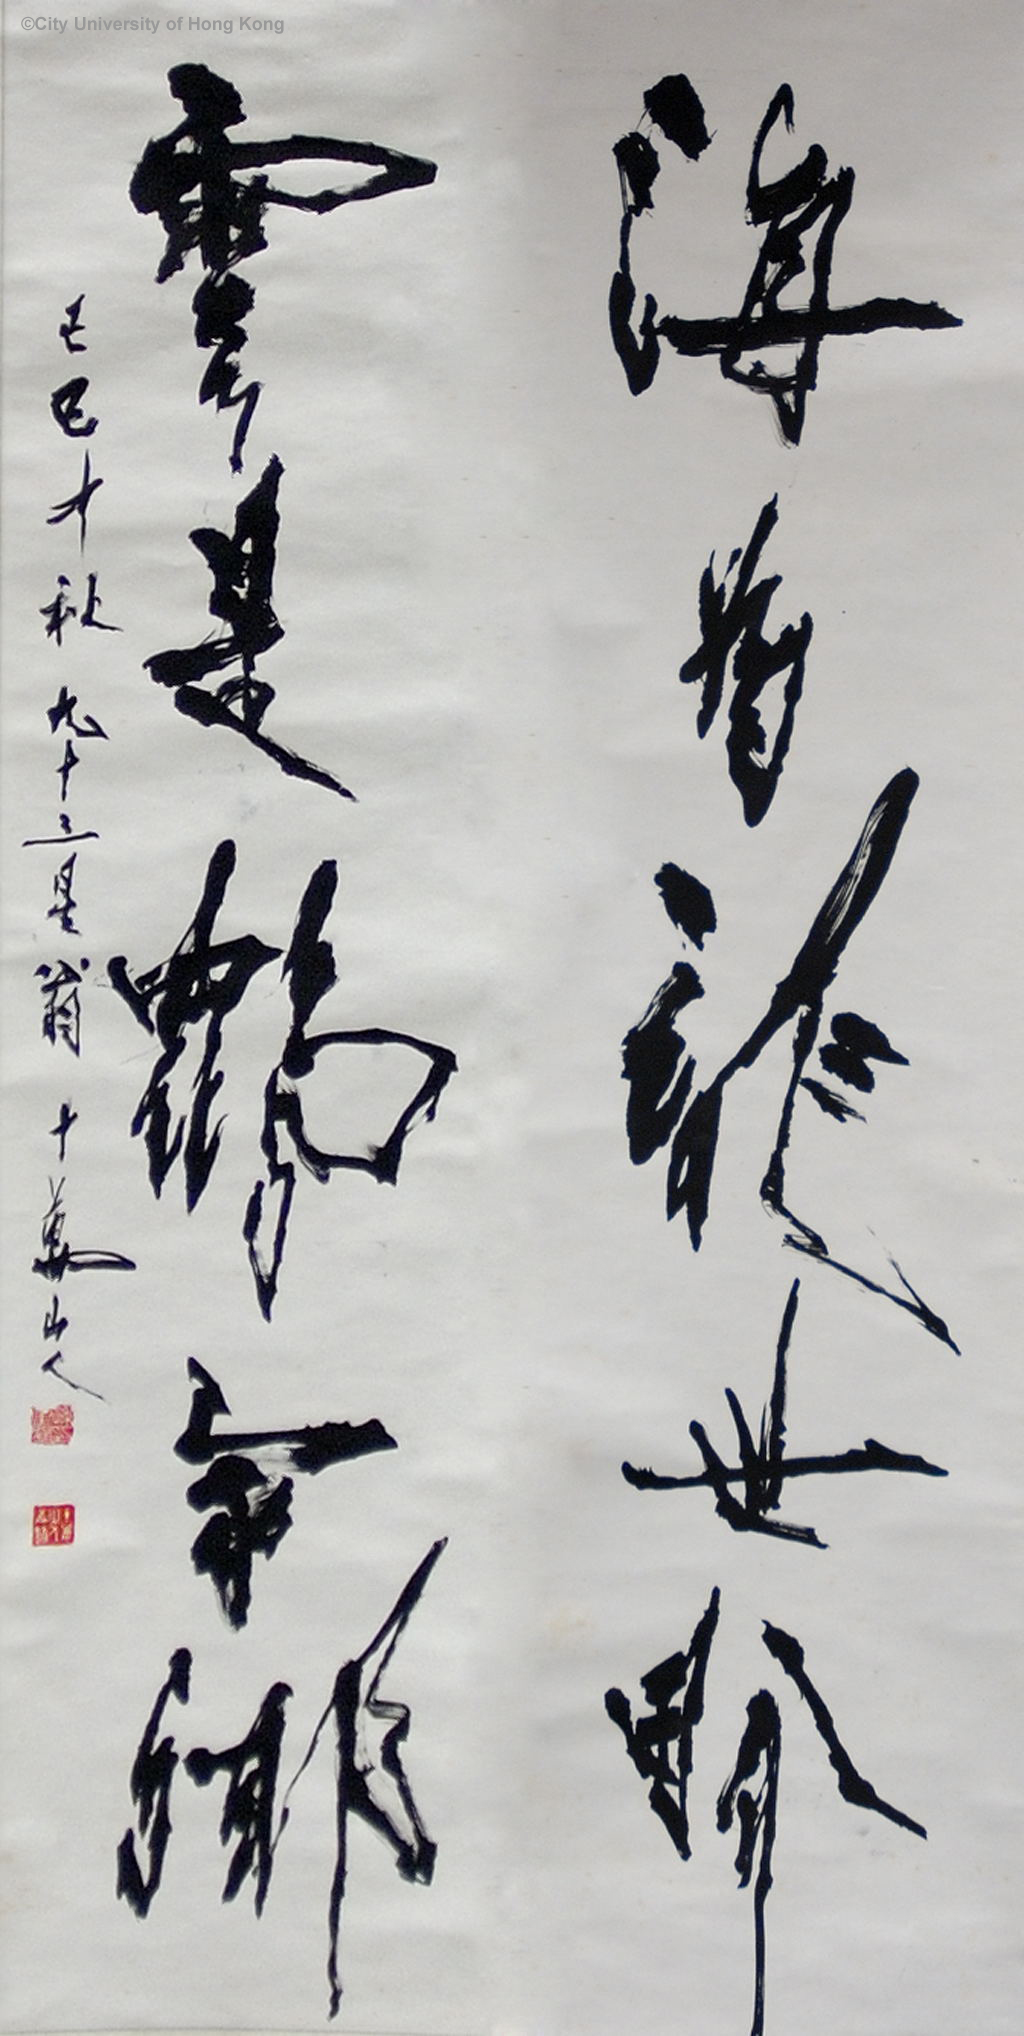 ©City University of Hong Kong
海為龍世界
雲是鶴家鄉
己巳中秋九十三星翁十萬山人